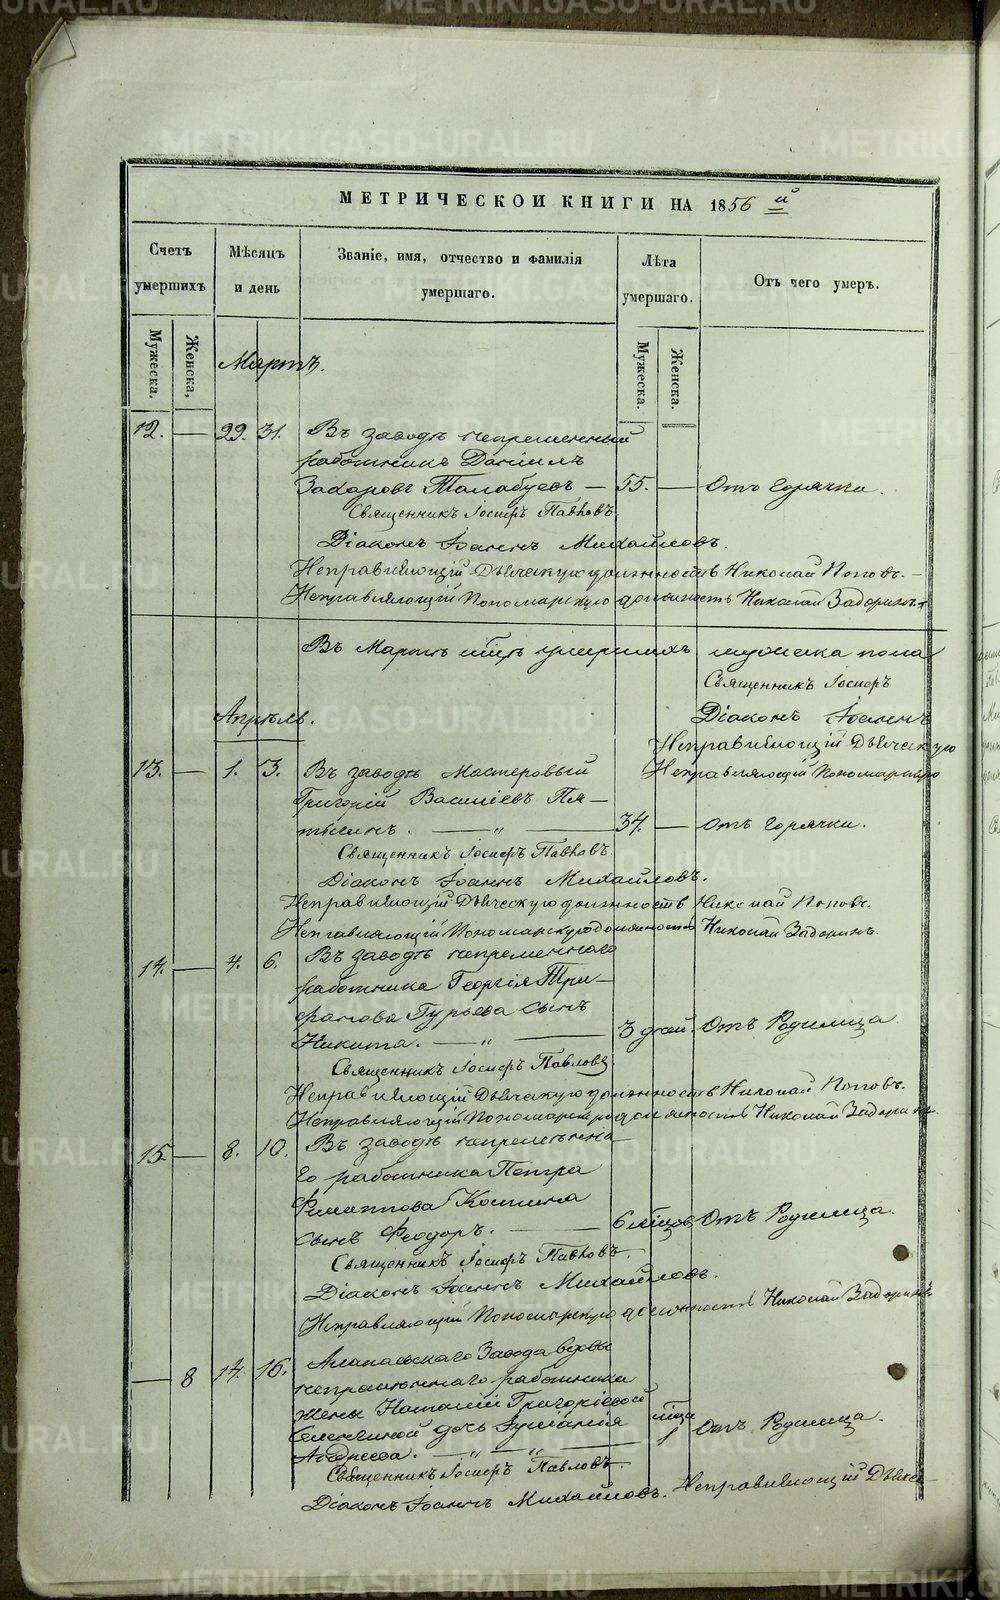 МЕТРИЧЕСКОЙ КНИГИ НА 1856 й
Счетъ умершихъ
Мѣсяцъ и день
Званіе, имя, отчество и фамилія умершаго.
Лѣта умершаго.
Отъ чего умеръ.
Мужеска.
Женска,
Мужеска.
Женска.
Мартъ.
12. — 29. 31. Въ заводѣ непременный
работникъ Даніилъ
Захаровъ Талабуевъ — 55. — Отъ Горячки.
Священникъ Іосифъ Павловъ.
Діаконъ Іоаннъ Михайловъ.
Исправляющій Дьяческую должность Николай Поповъ. —
Исправляющій Пономарскую должность Николай Задоринъ.
Въ Мартѣ умершихъ мужеска пола
Священникъ Іосифъ
Діаконъ Іоаннъ
Исправляющій Дьяческую
Исправляющій Пономарскую
Апрѣль.
13. — 1. 3. Въ заводѣ Мастеровый
Григорій Василіевъ Пя—
— „ — 34. — Отъ Горячки.
Священникъ Іосифъ Павловъ.
Діаконъ Іоаннъ Михайловъ.
Исправляющій Дьяческую должность Николай Поповъ.
Исправляющій Пономарскую должность Николай Задоринъ.
14. — 4. 6. Въ заводѣ непременнаго
работника Георгія Три—
фанова Гурьева сынъ
Никита. — „ — 3 дней. Отъ Родимца
Священникъ Іосифъ Павловъ.
Исправляющій Дьяческую должность Николай Поповъ.
Исправляющій Пономарскую должность Николай Задоринъ.
15 — 8. 10. Въ заводѣ непременна
го работника Петра
Филаттова Костина
сынъ Феодоръ. — 6 мѣсцов Отъ Родимца.
Священникъ Іосифъ Павловъ.
Діаконъ Іоаннъ Михайловъ.
Исправляющій Пономарскую должность Николай Задоринъ
— 8 14. 16. Алапаевскаго Завода вдовы
непременнаго работника
жены Наталіи Григоріевой
дочь Іуліанія
Андреева. — „ — „ — мсца 1 Отъ Родимца.
Священникъ Іосифъ Павловъ.
Діаконъ Іоаннъ Михайловъ. Исправляющій Дьяче—
METRIKI.GASO-URAL.RU